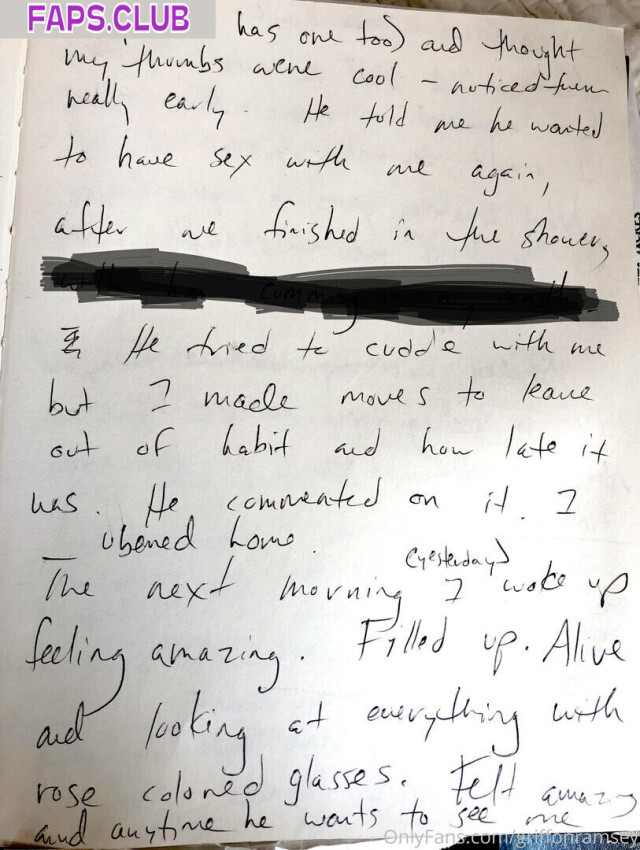 FAPS.CLUB
has one too) and thought
my thumbs were cool - noticed them
really early. He told me he wanted
to have sex with me again,
after we finished in the shower,
He tried to cuddle with me
but I made moves to leave
out of habit and how late it
was. He commented on it. I
ubered home.
(yesterday)
The next morning I woke up
feeling amazing. Filled up. Alive
and looking at everything with
rose colored glasses. Felt amazing
and anytime he wants to see me
OnlyFans.com/griffonramsey